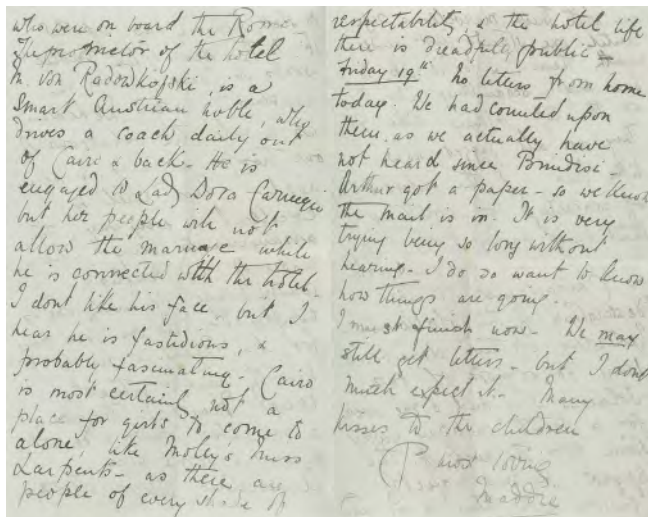 who were on board the Rome.
The proprietor of the hotel
M. von Radowkofski, is a
Smart Austrian noble, who
drives a coach daily out
of Cairo & back. He is
engaged to Lady Dora Carnegie
but her people will not
allow the marriage while
he is connected with the hotel.
I dont like his face, but I
hear he is fastidious, &
probably fascinating. Cairo
is most certainly not a
place for girls to come to
alone, like Moley's Miss
Larpents - as there are
people of every shade of
respectability & the hotel life
there is dreadfully public -
Friday 19th No letters from home
today. We had counted upon
them as we actually have
not heard since Brindisi -
Arthur got a paper - so we know
the mail is in. It is very
trying being so long without
hearing - I do so want to know
how things are going.
I must finish now - We may
still get letters - but I dont
much expect it - Many
kisses to the children
most loving
Maddie